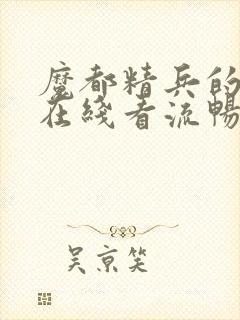 魔都精兵的
在綫看流暢
吴京笑